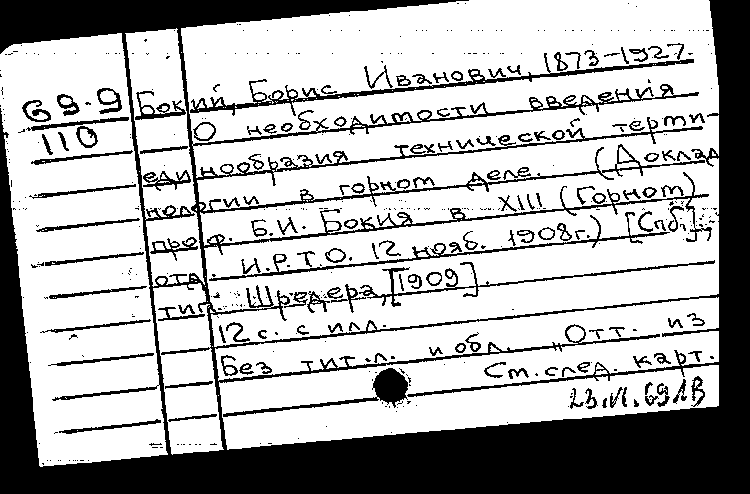 69-9
110
Бокий, Борис Иванович, 1873-1927.
О необходимости введения
единообразия технической терми-
нологии в горном деле. (Доклад
проф. Б.И. Бокия в XIII (Горном)
отд. И.Р.Т.О. 12 нояб. 1908г.) [Спб.],
тип. Шредера, [1909].
12 с. с илл.
Без тит.л. и обл. „Отт. из
См.след. карт.
23.VI.69 ЛВ